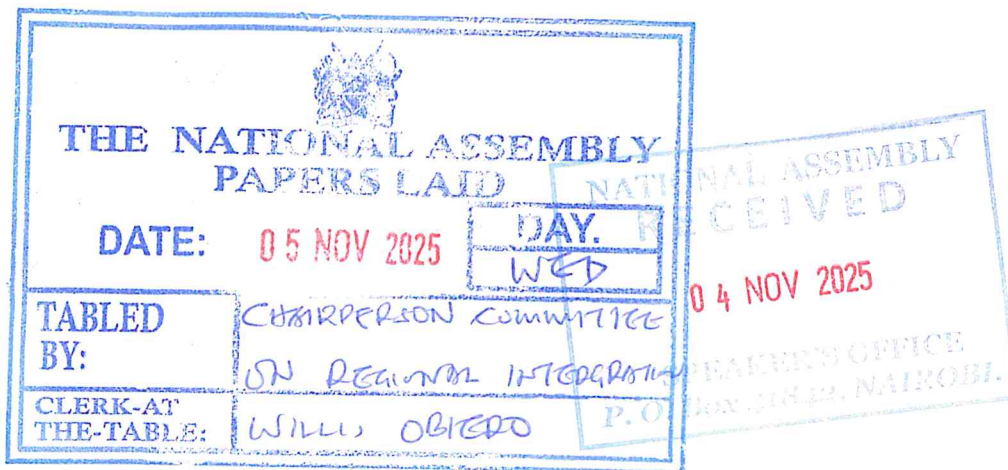 THE NATIONAL ASSEMBLY
PAPERS LAID
DATE: 05 NOV 2025
DAY.
WED
TABLED BY:
CHAIRPERSON COMMITTEE
ON REGIONAL INTEGRATION
CLERK-AT THE-TABLE:
WILLIS OBIERO
NATIONAL ASSEMBLY
RECEIVED
04 NOV 2025
SPEAKER'S OFFICE
P. O. Box NAIROBI.